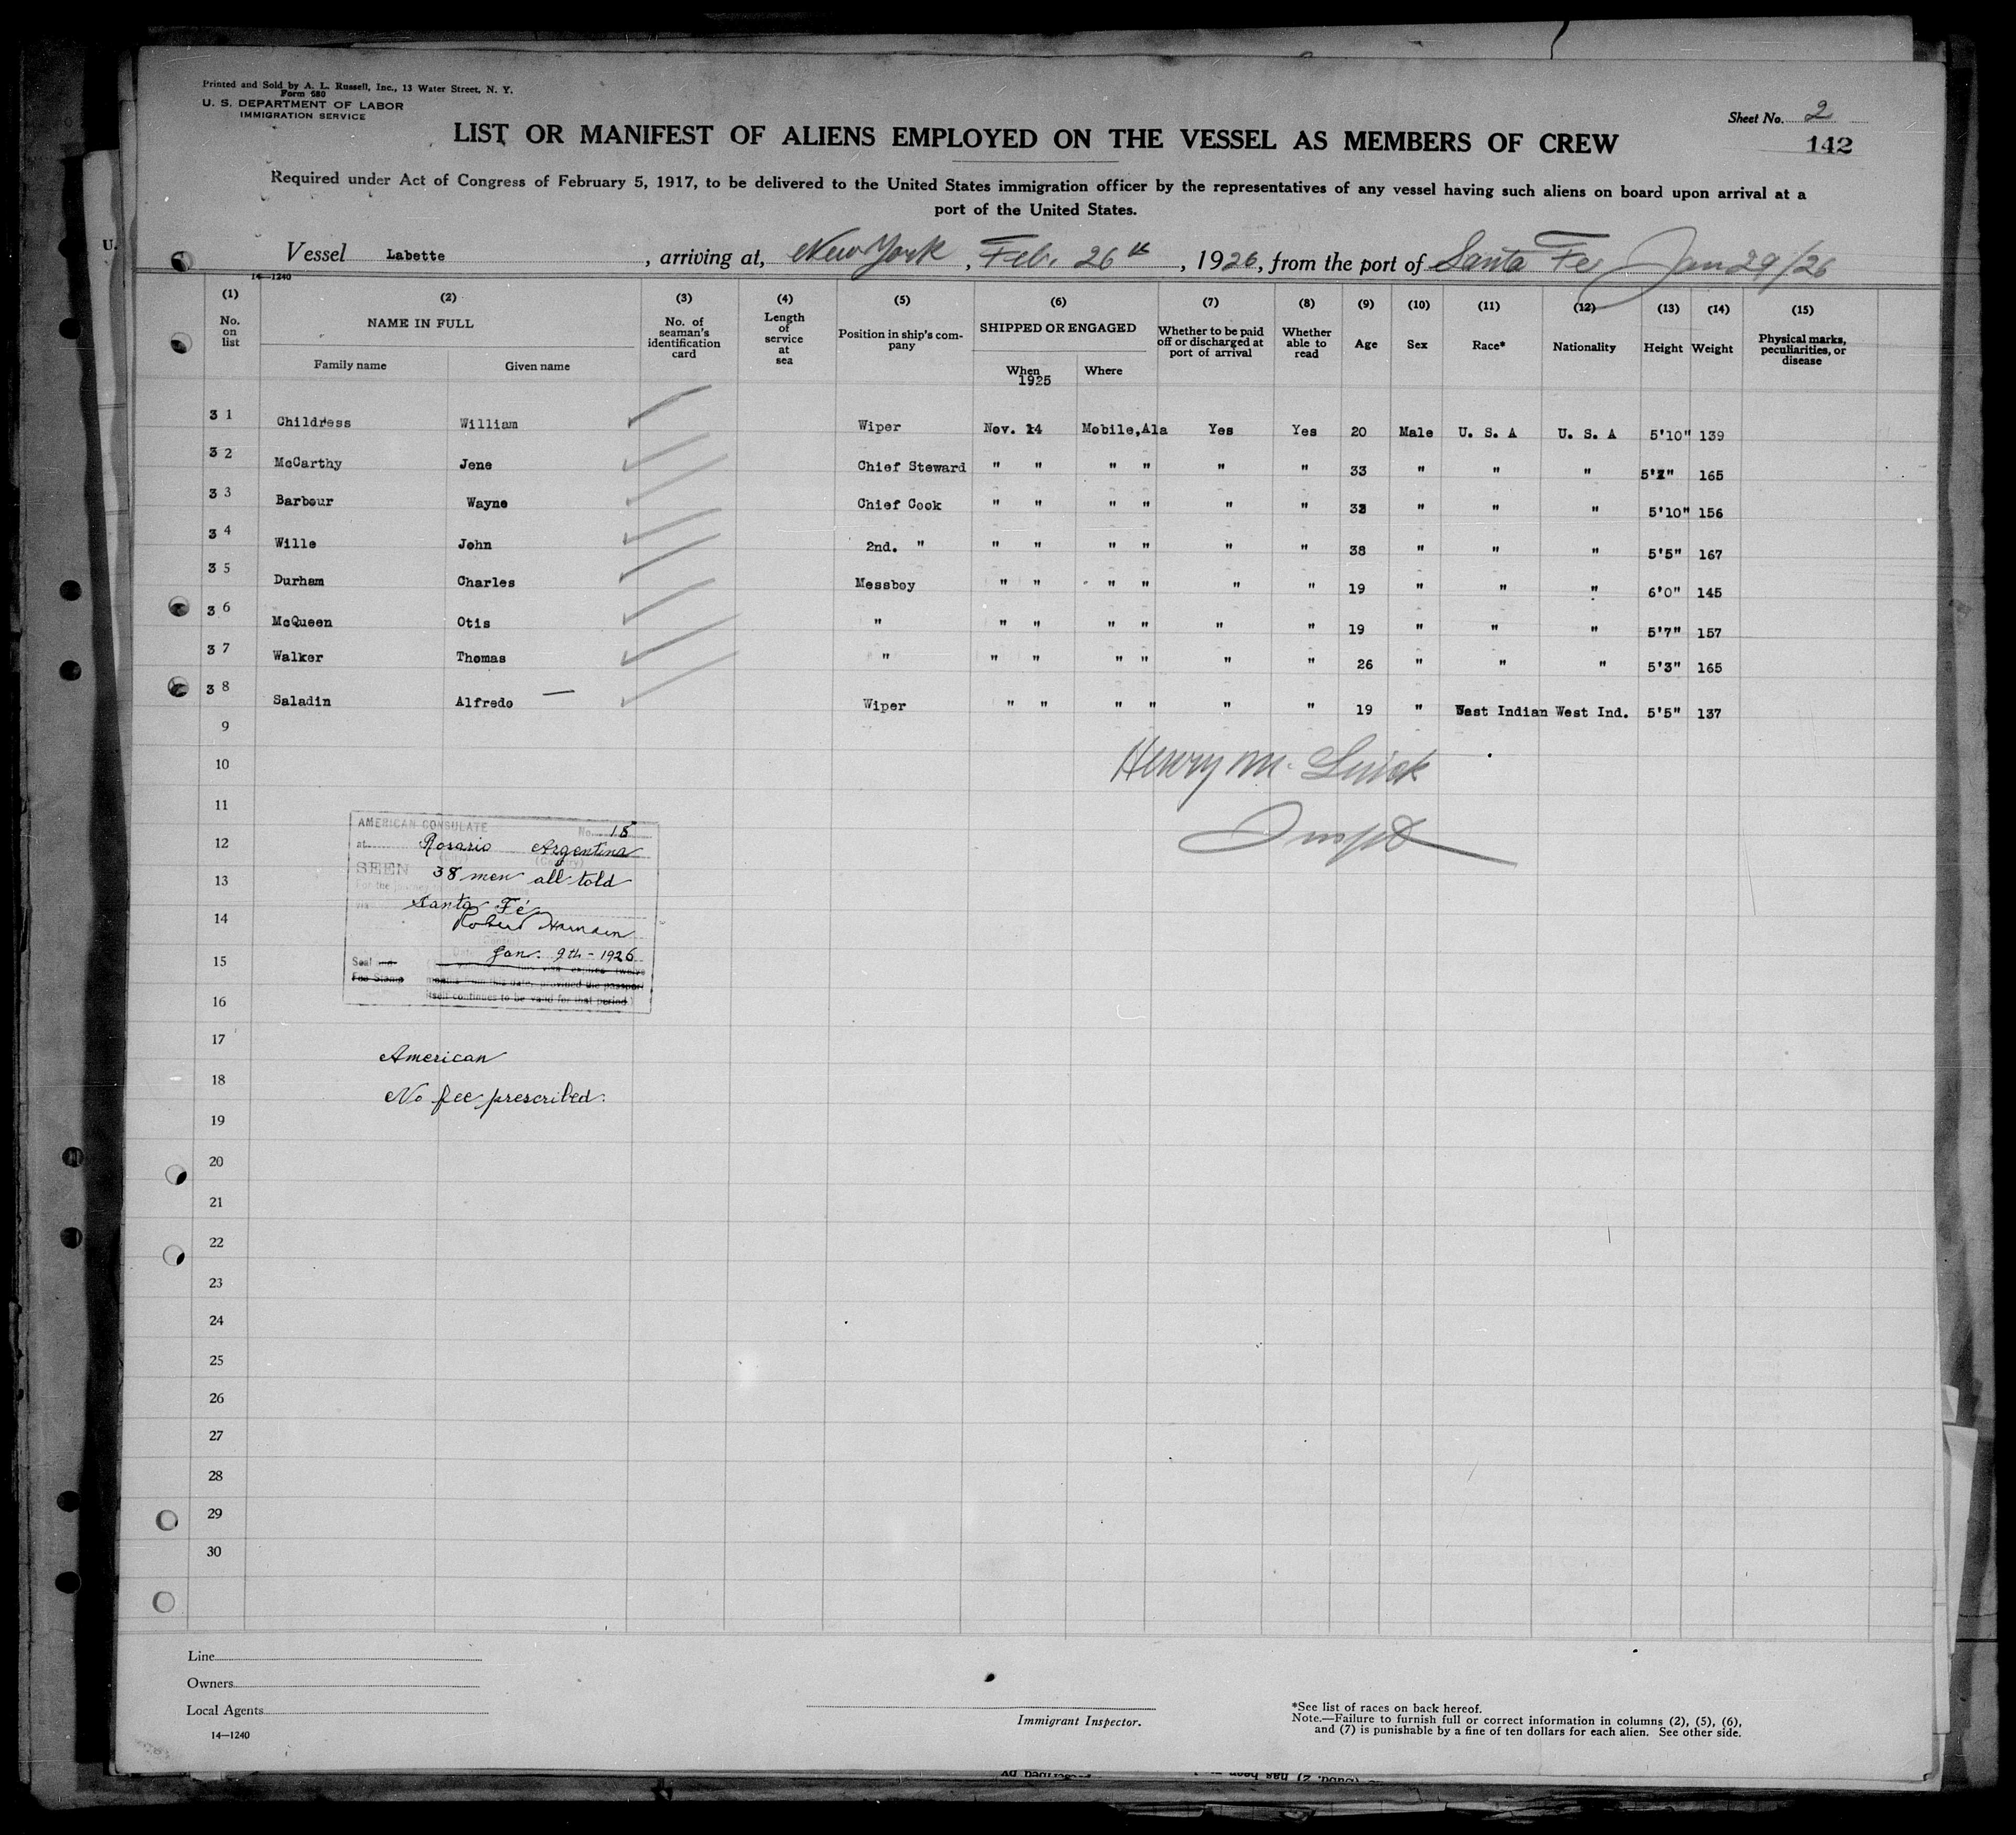 Printed and Sold by A. L. Russell, Inc., 13 Water Street, N. Y.
Form 680
U. S. DEPARTMENT OF LABOR
IMMIGRATION SERVICE
Sheet No. 2
142
LIST OR MANIFEST OF ALIENS EMPLOYED ON THE VESSEL AS MEMBERS OF CREW
Required under Act of Congress of February 5, 1917, to be delivered to the United States immigration officer by the representatives of any vessel having such aliens on board upon arrival at a
port of the United States.
Vessel Labette, arriving at, New York, Feb. 26th, 1926, from the port of Santa Fe Jan 29/26
14—1240
(1) (2) (3) (4) (5) (6) (7) (8) (9) (10) (11) (12) (13) (14) (15)
No. on list
NAME IN FULL
Family name
Given name
No. of seaman's identification card
Length of service at sea
Position in ship's company
SHIPPED OR ENGAGED
When
1925
Where
Whether to be paid off or discharged at port of arrival
Whether able to read
Age
Sex
Race*
Nationality
Height
Weight
Physical marks, peculiarities, or disease
31 Childress William Wiper Nov. 14 Mobile,Ala Yes Yes 20 Male U. S. A U. S. A 5'10" 139
32 McCarthy Jene Chief Steward " " " " " " 33 " " " 165
33 Barbour Wayne Chief Cook " " " " " " " " " 5'10" 156
34 Wille John 2nd. " " " " " " " 38 " " " 5'5" 167
35 Durham Charles Messboy " " " " " " 19 " " " 6'0" 145
36 McQueen Otis " " " " " " " 19 " " " 5'7" 157
37 Walker Thomas " " " " " " " 26 " " " 5'3" 165
38 Saladin Alfredo — Wiper " " " " " " 19 " West Indian West Ind. 5'5" 137
9
10 Henry M.
11
AMERICAN CONSULATE No. 15
12 at Rosario Argentina Inspt
(City) (Country)
SEEN 38 men all told
13
For the journey to the United States
via Santa Fé
14 Robert Harnden
Jan. 9th - 1926
15 Seal and
Fee Stamp
months from this date, provided the passport
itself continues to be valid for that period.)
16
17
American
18
No fee prescribed.
19
20
21
22
23
24
25
26
27
28
29
30
Line
Owners
Local Agents
14—1240
Immigrant Inspector.
*See list of races on back hereof.
Note.—Failure to furnish full or correct information in columns (2), (5), (6),
and (7) is punishable by a fine of ten dollars for each alien. See other side.